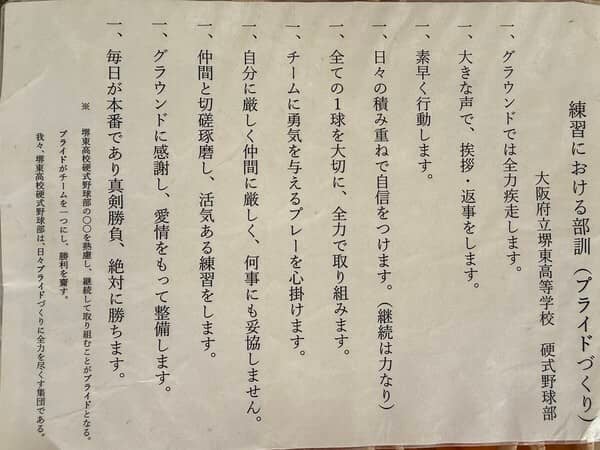 練習における部訓(プライドづくり)
大阪府立堺東高等学校 硬式野球部
一、グラウンドでは全力疾走します。
一、大きな声で、挨拶・返事をします。
一、素早く行動します。
一、日々の積み重ねで自信をつけます。(継続は力なり)
一、全ての1球を大切に、全力で取り組みます。
一、チームに勇気を与えるプレーを心掛けます。
一、自分に厳しく仲間に厳しく、何事にも妥協しません。
一、仲間と切磋琢磨し、活気ある練習をします。
一、グラウンドに感謝し、愛情をもって整備します。
一、毎日が本番であり真剣勝負、絶対に勝ちます。
※ 堺東高校硬式野球部の〇〇を熟慮し、継続して取り組むことがプライドとなる。
プライドがチームを一つにし、勝利を齎す。
我々、堺東高校硬式野球部は、日々プライドづくりに全力を尽くす集団である。